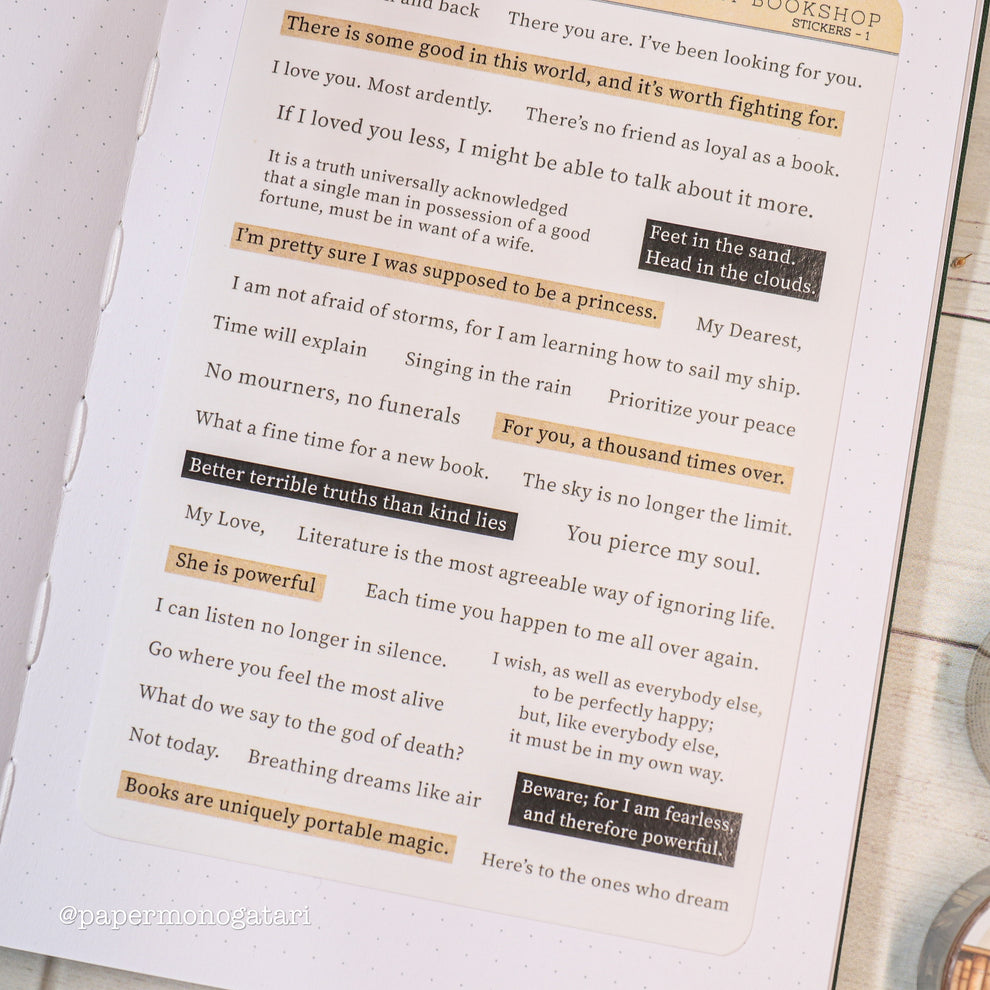 and back
There you are. I've been looking for you.
BOOKSHOP
STICKERS - 1
There is some good in this world, and it's worth fighting for.
I love you. Most ardently.
There's no friend as loyal as a book.
If I loved you less, I might be able to talk about it more.
It is a truth universally acknowledged
that a single man in possession of a good
fortune, must be in want of a wife.
Feet in the sand.
Head in the clouds.
I'm pretty sure I was supposed to be a princess.
My Dearest,
I am not afraid of storms, for I am learning how to sail my ship.
Time will explain
Singing in the rain
Prioritize your peace
No mourners, no funerals
For you, a thousand times over.
What a fine time for a new book.
The sky is no longer the limit.
Better terrible truths than kind lies
You pierce my soul.
My Love,
Literature is the most agreeable way of ignoring life.
She is powerful
Each time you happen to me all over again.
I can listen no longer in silence.
I wish, as well as everybody else,
to be perfectly happy;
but, like everybody else,
it must be in my own way.
Go where you feel the most alive
What do we say to the god of death?
Not today.
Breathing dreams like air
Beware; for I am fearless,
and therefore powerful.
Books are uniquely portable magic.
Here's to the ones who dream
@papermonogatari